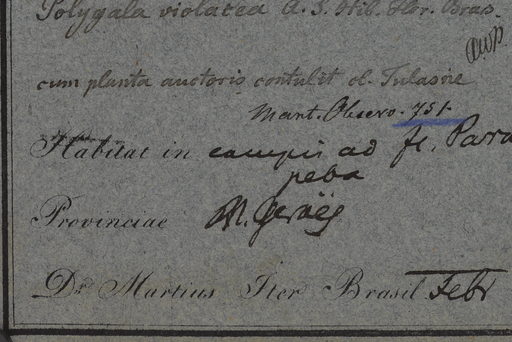 Polygala violacea A. S. Hil. Flor. Bras.
cum planta auctoris contulit cl. Tulasne
Mart. Observ. 751.
Habitat in campis ad fl. Parao
peba
Provinciae M. Geraës
Dr Martius Iter Brasil. Febr